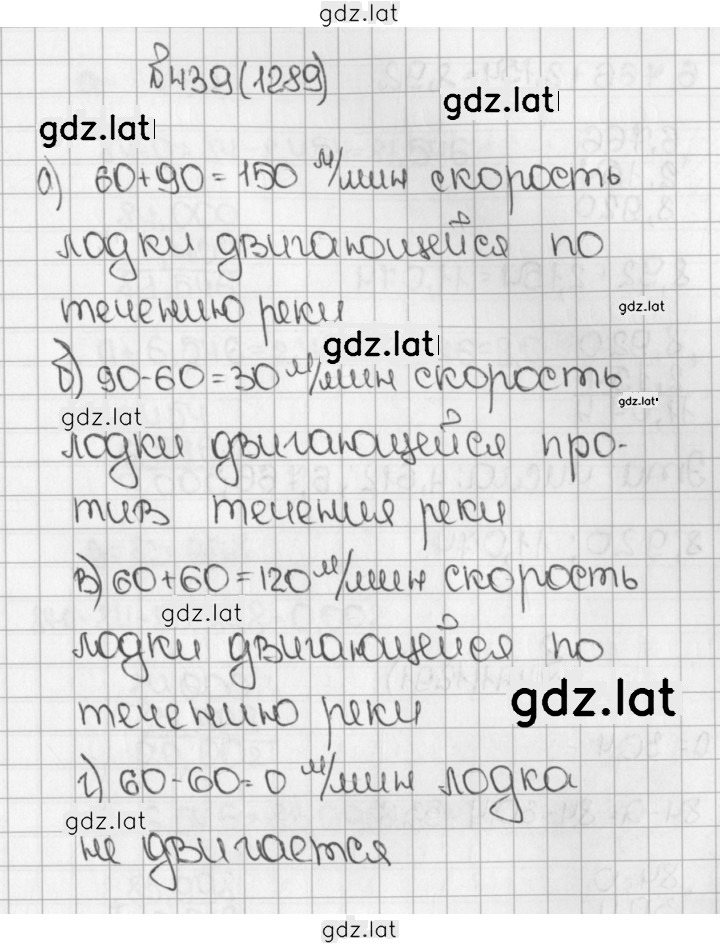 gdz.lat
В439(1289)
gdz.lat
gdz.lat
а) 60+90=150 м/мин скорость
лодки двигающейся по
gdz.lat
течению реки
gdz.lat
б) 90-60=30 м/мин скорость
gdz.lat
gdz.lat
лодки двигающейся про-
тив течения реки
в) 60+60=120 м/мин скорость
gdz.lat
лодки двигающейся по
течению реки
gdz.lat
г) 60-60=0 м/мин лодка
gdz.lat
не двигается
gdz.lat